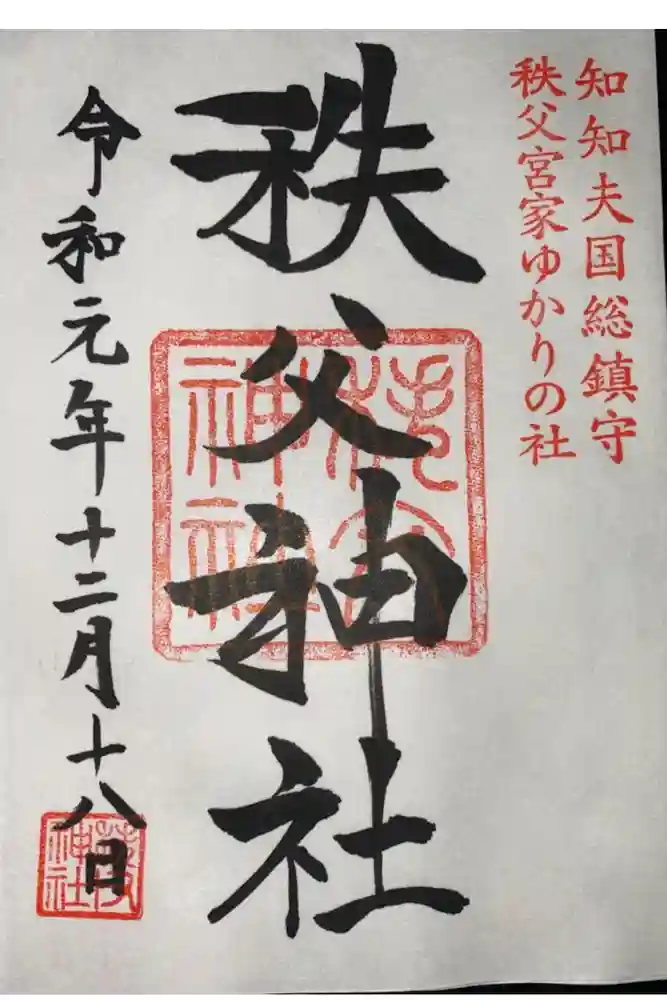 知知夫国総鎮守
秩父宮家ゆかりの社
秩父神社
令和元年十二月十八日
秩父
神社